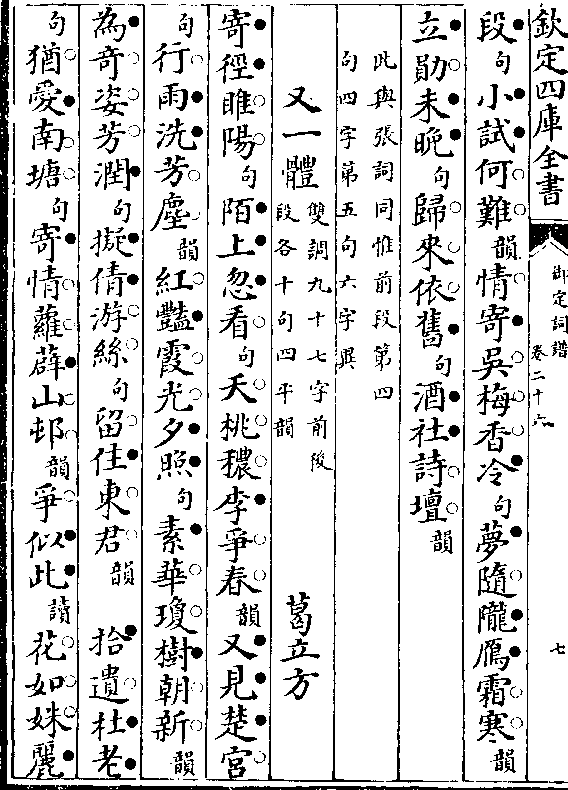 欽定四庫全書
御定詞譜
卷二十六
七
段句小試何難韻情寄吳梅香冷句夢隨隴鴈霜寒韻
立勛未晚句歸來依舊句酒社詩壇韻
此與張詞同惟前段第四
句四字第五句六字異
又一體雙調九十七字前後段各十句四平韻葛立方
寄徑睢陽句陌上忽看句夭桃穠李爭春韻又見楚宮
句行雨洗芳塵韻紅豔霞光夕照句素華瓊樹朝新韻
為奇姿芳潤句擬倩游絲句留住東君韻拾遺杜老
句猶愛南塘句寄情蘿薜山邨韻爭似此讀花如姝麗